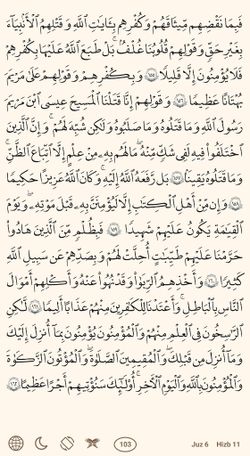 فَبِمَا نَقْضِهِم مِّيثَٰقَهُمْ وَكُفْرِهِم بِـَٔايَٰتِ ٱللَّهِ وَقَتْلِهِمُ ٱلْأَنۢبِيَآءَ
بِغَيْرِ حَقٍّ وَقَوْلِهِمْ قُلُوبُنَا غُلْفٌۢ ۚ بَلْ طَبَعَ ٱللَّهُ عَلَيْهَا بِكُفْرِهِمْ
فَلَا يُؤْمِنُونَ إِلَّا قَلِيلًا ١٥٥ وَبِكُفْرِهِمْ وَقَوْلِهِمْ عَلَىٰ مَرْيَمَ
بُهْتَٰنًا عَظِيمًا ١٥٦ وَقَوْلِهِمْ إِنَّا قَتَلْنَا ٱلْمَسِيحَ عِيسَى ٱبْنَ مَرْيَمَ
رَسُولَ ٱللَّهِ وَمَا قَتَلُوهُ وَمَا صَلَبُوهُ وَلَٰكِن شُبِّهَ لَهُمْ ۚ وَإِنَّ ٱلَّذِينَ
ٱخْتَلَفُوا۟ فِيهِ لَفِى شَكٍّ مِّنْهُ ۚ مَا لَهُم بِهِۦ مِنْ عِلْمٍ إِلَّا ٱتِّبَاعَ ٱلظَّنِّ ۚ
وَمَا قَتَلُوهُ يَقِينًۢا ١٥٧ بَل رَّفَعَهُ ٱللَّهُ إِلَيْهِ ۚ وَكَانَ ٱللَّهُ عَزِيزًا حَكِيمًا
١٥٨ وَإِن مِّنْ أَهْلِ ٱلْكِتَٰبِ إِلَّا لَيُؤْمِنَنَّ بِهِۦ قَبْلَ مَوْتِهِۦ ۖ وَيَوْمَ
ٱلْقِيَٰمَةِ يَكُونُ عَلَيْهِمْ شَهِيدًا ١٥٩ فَبِظُلْمٍ مِّنَ ٱلَّذِينَ هَادُوا۟
حَرَّمْنَا عَلَيْهِمْ طَيِّبَٰتٍ أُحِلَّتْ لَهُمْ وَبِصَدِّهِمْ عَن سَبِيلِ ٱللَّهِ
كَثِيرًا ١٦٠ وَأَخْذِهِمُ ٱلرِّبَوٰا۟ وَقَدْ نُهُوا۟ عَنْهُ وَأَكْلِهِمْ أَمْوَٰلَ
ٱلنَّاسِ بِٱلْبَٰطِلِ ۚ وَأَعْتَدْنَا لِلْكَٰفِرِينَ مِنْهُمْ عَذَابًا أَلِيمًا ١٦١ لَّٰكِنِ
ٱلرَّٰسِخُونَ فِى ٱلْعِلْمِ مِنْهُمْ وَٱلْمُؤْمِنُونَ يُؤْمِنُونَ بِمَآ أُنزِلَ إِلَيْكَ
وَمَآ أُنزِلَ مِن قَبْلِكَ ۚ وَٱلْمُقِيمِينَ ٱلصَّلَوٰةَ ۚ وَٱلْمُؤْتُونَ ٱلزَّكَوٰةَ
وَٱلْمُؤْمِنُونَ بِٱللَّهِ وَٱلْيَوْمِ ٱلْءَاخِرِ أُو۟لَٰٓئِكَ سَنُؤْتِيهِمْ أَجْرًا عَظِيمًا ١٦٢
103 Juz 6 Hizb 11